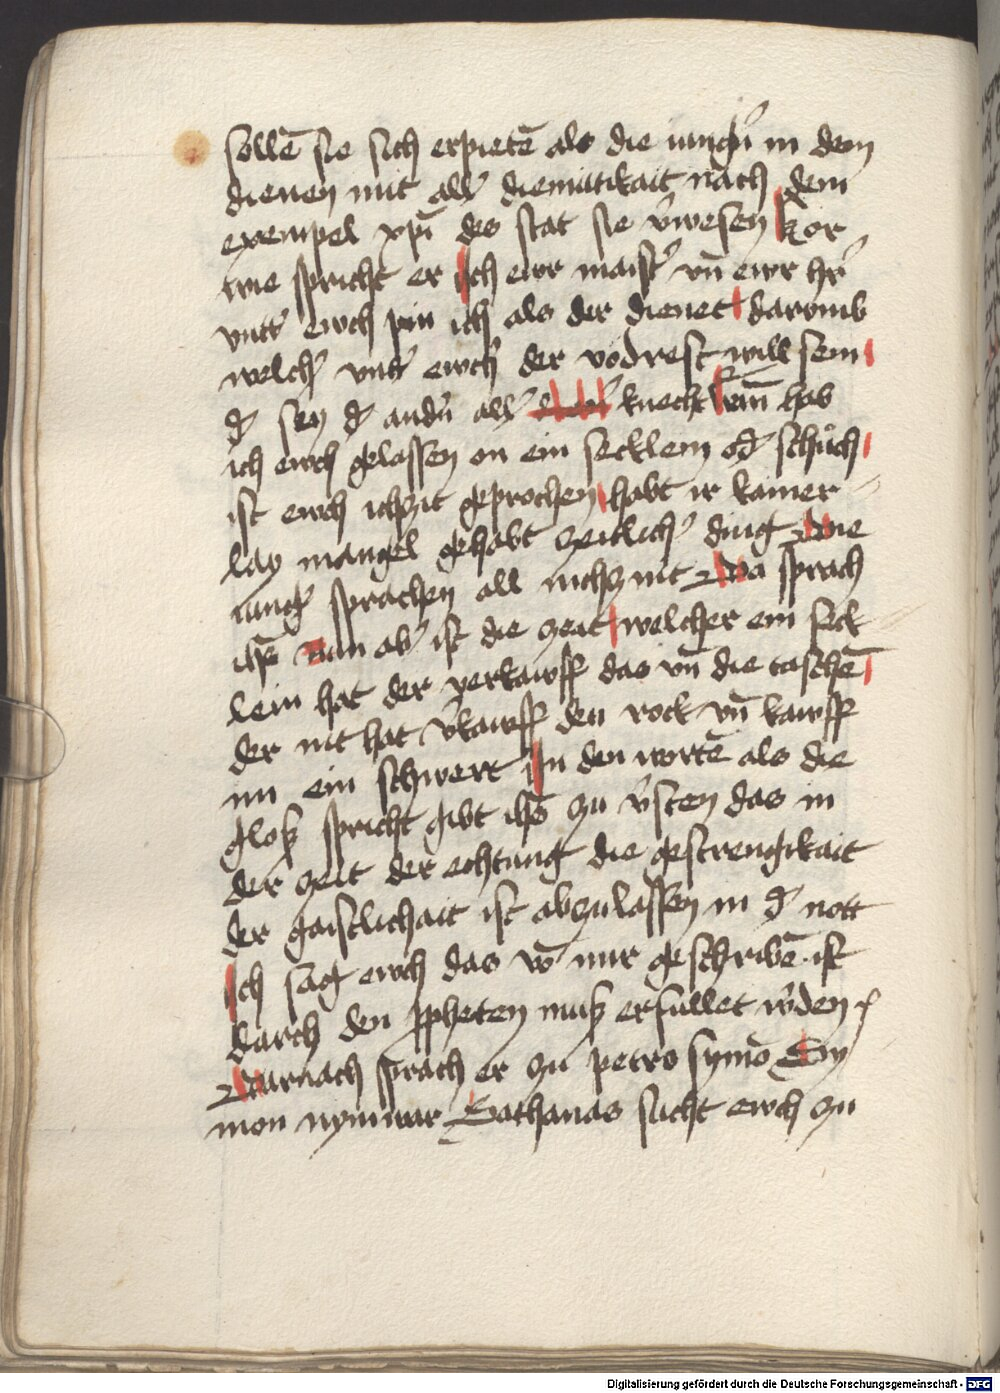 sollē sie sich erpietē als die iungn̄ in dem
dienen mit all diemütikait nach dem
exempel xp̄i des stat sie v̄wesen hor
wie spricht er ich ewr maist̄ vn̄ ewr hr̄
vntt̄ ewch pin ich als der dienet darvmb
welch̄ vntt̄ ewch der vodrest will sein
d̄ sey d̄ andn̄ all knecht hab
ich ewch gelassen on ein secklein od̄ schůch
ist ewch ichzit geprochen habt ir kainer
lay mangel gehabt zeitlich̄ ding Die
iunḡ sprachen all nichz nit Da sprach
ih̄s Nun ab̄ ist die zeit welcher ein seck
lein hat der verkawff das vn̄ die taschē
der nit hat v̄kawff den rock vn̄ kawff
im ein schwert In den wortē als die
gloß spricht gibt ih̄s zu v̄sten das in
der zeit der echtung die gestrengikait
der gaistlichait ist abzulassen in d̄ nott
Ich sag ewch das vō mir geschribē ist
durch den ꝓpheten muß erfullet w̄den
Darnach sprach er zu petro symō Sy
mon nymwar Sathanas sucht ewch zu
Digitalisierung gefördert durch die Deutsche Forschungsgemeinschaft - DFG